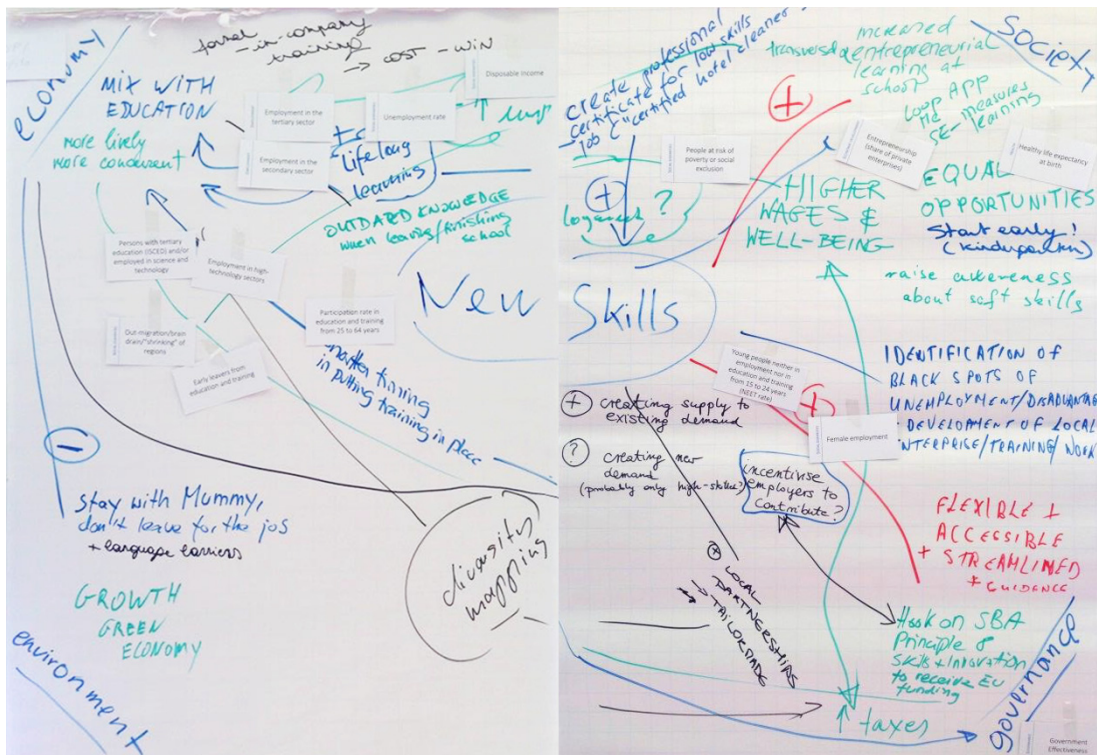 economy
formal
- in-company
training
→ COST - WIN
MIX WITH
EDUCATION
more lively
more concurrent
Employment in the
tertiary sector
Unemployment rate
Disposable income
Employment in the
secondary sector
Life long
learning
OUTDARD KNOWLEDGE
when leaving/finishing
school
Persons with tertiary
education (ISCED) and/or
employed in science and
technology
Employment in high-
technology sectors
Participation rate in
education and training
from 25 to 64 years
Out-migration/brain
drain/"shrinking" of
regions
Early leavers from
education and training
New
in putting training in place
−
stay with Mummy,
don't leave for the job
+ language barriers
diversity
mapping
GROWTH
GREEN
ECONOMY
environment
create professional
certificate for low skills
job ("certified hotel cleaner"
+
People at risk of
poverty or social
exclusion
?
+
increased
entrepreneurial
learning at
school
society
Loop App
SE-measures
learning
Entrepreneurship
(share of private
enterprises)
Healthy life expectancy
at birth
HIGHER
WAGES &
WELL-BEING
EQUAL
OPPORTUNITIES
Start early!
(kindergarten)
raise awareness
about soft skills
Skills
Young people neither in
employment nor in
education and training
from 15 to 24 years
(NEET rate)
+
Female employment
IDENTIFICATION OF
BLACK SPOTS OF
UNEMPLOYMENT/DISADVANTAGE
DEVELOPMENT OF LOCAL
ENTERPRISE/TRAINING/WORK
+ creating supply to
existing demand
? creating new
demand
(probably only high-skills?)
incentivise
employers to
contribute?
FLEXIBLE +
ACCESSIBLE
+ STREAMLINED
+ GUIDENCE
+ LOCAL
PARTNERSHIPS
→ TAILORMADE
Hook on SBA
Principle 8
Skills + Innovation
to receive EU
funding
↑ taxes
governance
Government
Effectiveness